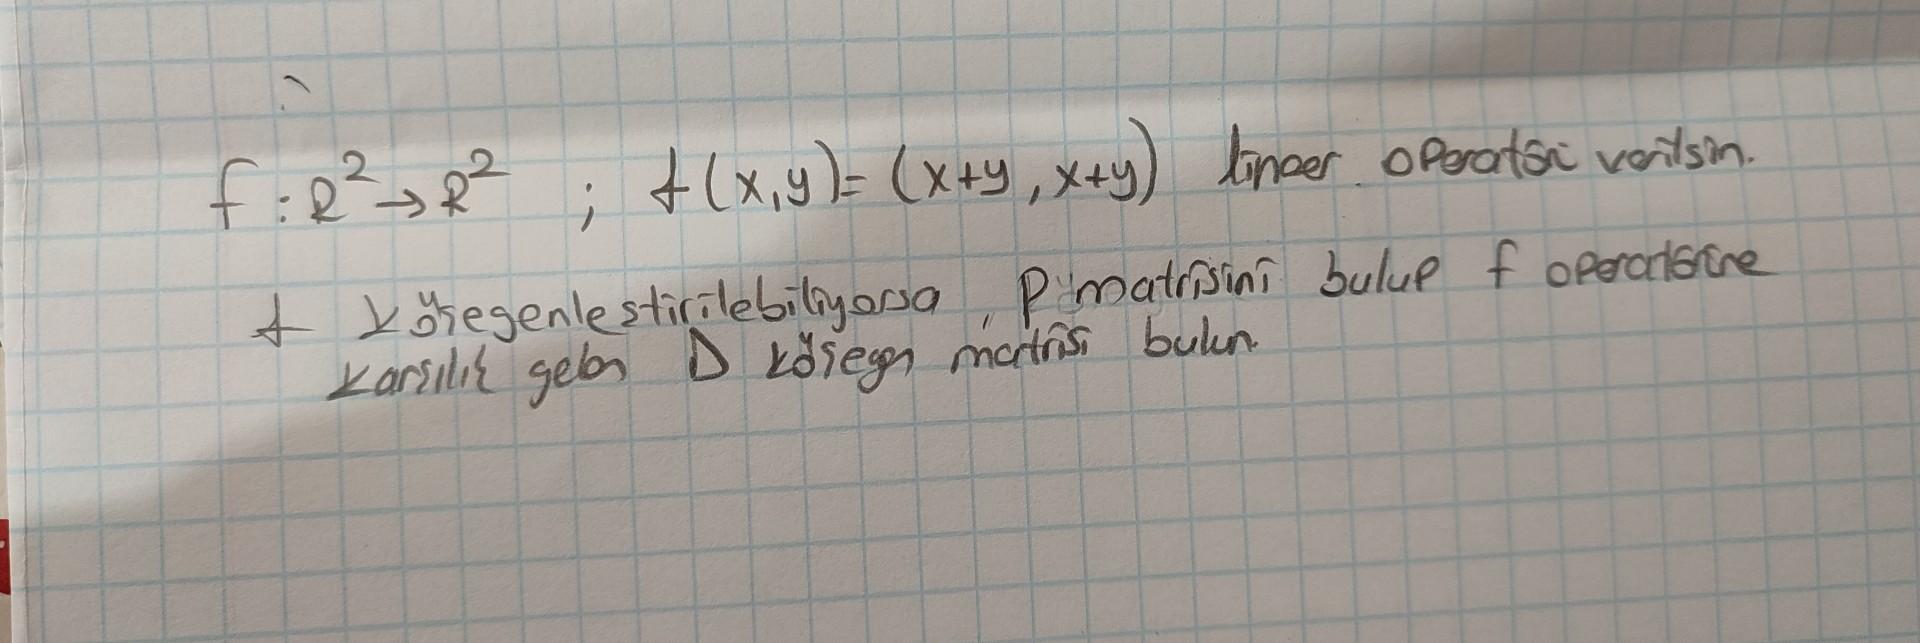 f : R² → R² ; f(x,y) = (x+y, x+y) lineer operatörü verilsin.
f köşegenleştirilebiliyorsa, P matrisini bulup f operatörüne
karşılık gelen D köşegen matrisi bulun.